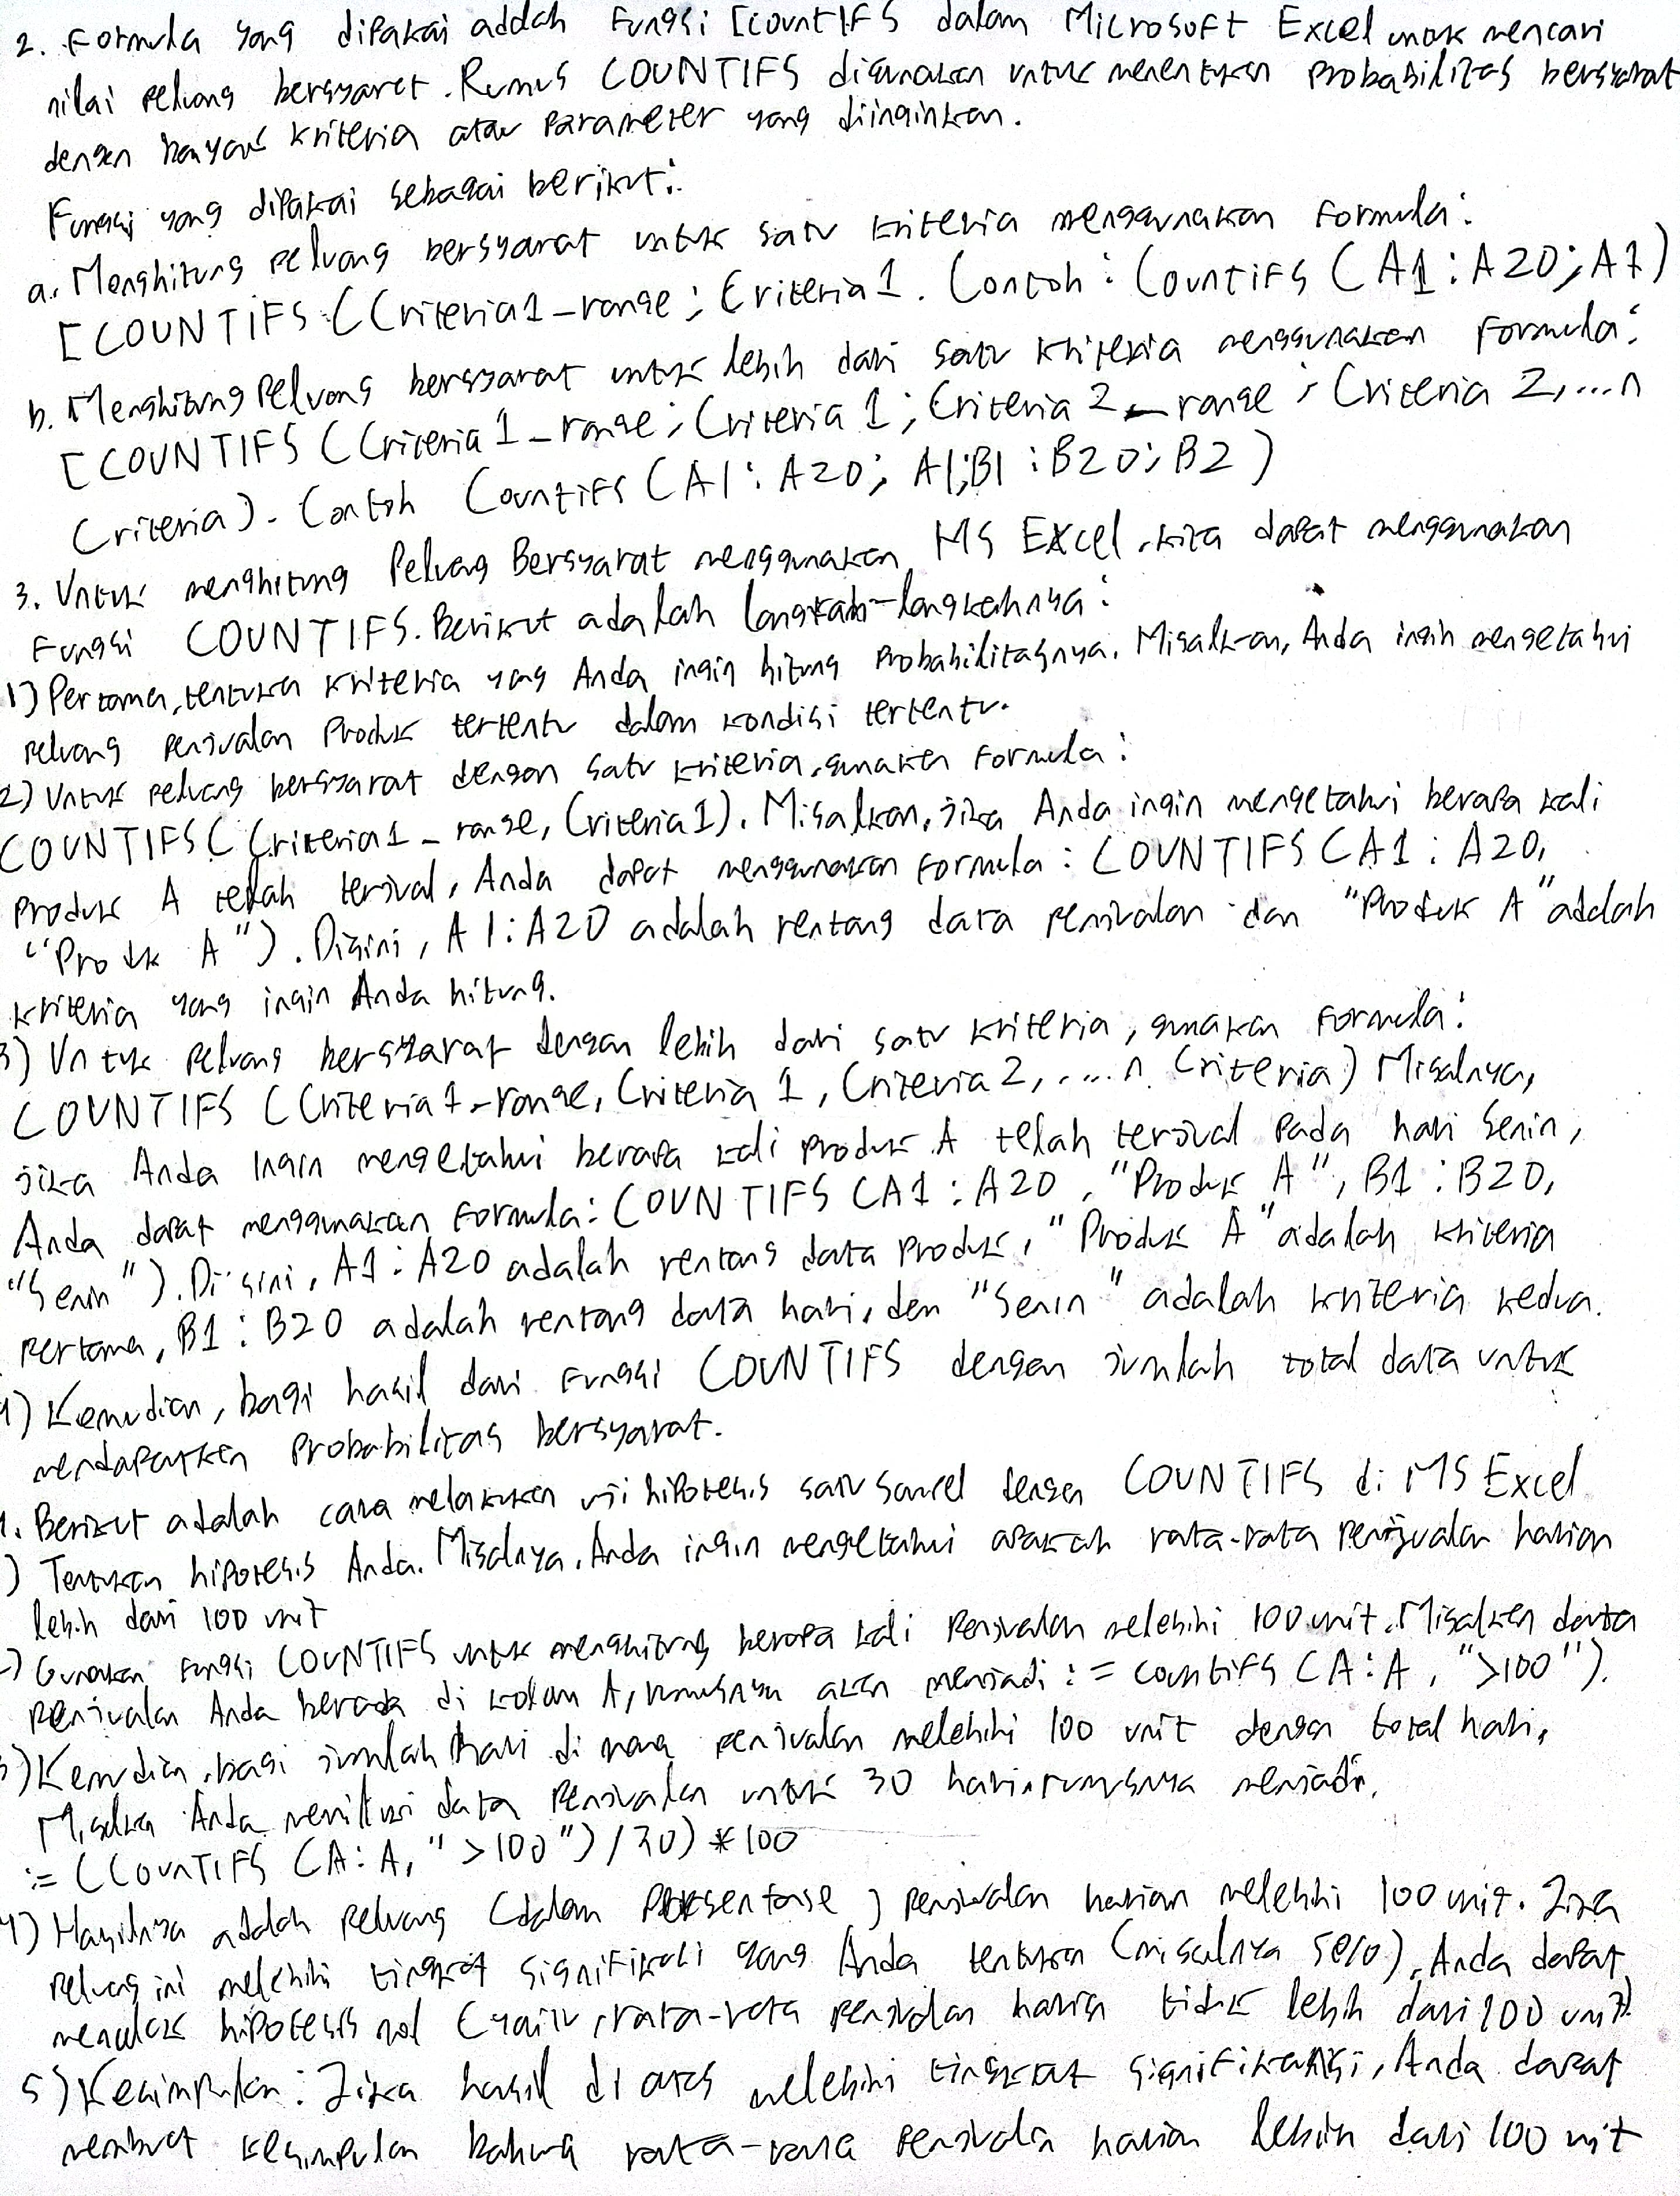 2. Formula yang dipakai addah Fungsi [countIFS dalam Microsoft Excel untuk mencari
nilai peluang bersyaret. Rumus COUNTIFS digunakan untuk menentukan probabilitas bersyarat
dengan banyak kriteria atau parameter yang diinginkan.
Fungsi yang dipakai sebagai berikut:
a. Menghitung peluang bersyarat untuk satu kriteria menggunakan Formula:
[COUNTIFS (Criteria1_range; Criteria1. Contoh: CountIFS (A1:A20;A1)
b. Menghitung peluang bersyarat untuk lebih dari satu kriteria menggunakan Formula:
[COUNTIFS (Criteria1_range; Criteria 1; Criteria 2_range; Criteria 2,...n
Criteria). Contoh CountIFS (A1:A20; A1;B1:B20;B2)
3. Untuk menghitung Peluang Bersyarat menggunakan MS EXcel, kita dapat menggunakan
Fungsi COUNTIFS. Berikut adalah langkah-langkahnya:
1) Pertama, tentukan kriteria yang Anda ingin hitung Probabilitasnya. Misalkan, Anda ingin mengetahui
peluang penjualan Produk tertentu dalam kondisi tertentu.
2) Untuk peluang bersyarat dengan satu kriteria, gunakan Formula:
COUNTIFS (Criteria1_range, Criteria1). Misalkan, jika Anda ingin mengetahui berapa kali
Produk A telah terjual, Anda dapat menggunakan Formula: COUNTIFS (A1:A20,
"Produk A"). Disini, A1:A20 adalah rentang data penjualan dan "Produk A" adalah
kriteria yang ingin Anda hitung.
3) Untuk peluang bersyarat dengan lebih dari satu kriteria, gunakan Formula:
COUNTIFS (Criteria1_range, Criteria 1, Criteria 2, ....n Criteria) Misalnya,
jika Anda ingin mengetahui berapa kali Produk A telah terjual pada hari Senin,
Anda dapat menggunakan Formula: COUNTIFS (A1:A20, "Produk A", B1:B20,
"Senin"). Di sini, A1:A20 adalah rentang data Produk, "Produk A" adalah kriteria
pertama, B1:B20 adalah rentang data hari, dan "Senin" adalah kriteria kedua.
4) Kemudian, bagi hasil dari Fungsi COUNTIFS dengan jumlah total data untuk
mendapatkan Probabilitas bersyarat.
4. Berikut adalah cara melakukan uji hipotesis satu sampel dengan COUNTIFS di MS Excel
) Tentukan hipotesis Anda. Misalnya, Anda ingin mengetahui apakah rata-rata penjualan harian
lebih dari 100 unit
2) Gunakan Fungsi COUNTIFS untuk menghitung berapa kali Penjualan melebihi 100 unit. Misalkan data
Penjualan Anda berada di kolom A, rumusnya akan menjadi := countifs (A:A, ">100").
3) Kemudian, bagi jumlah hari di mana penjualan melebihi 100 unit dengan total hari,
Misalkan Anda memiliki data Penjualan untuk 30 hari, rumusnya menjadi.
:= (COUNTIFS (A:A, ">100")/30) *100
4) Hasilnya adalah peluang (dalam Persentase) penjualan harian melebihi 100 unit. Jika
peluang ini melebihi tingkat signifikasi yang Anda tentukan (misalnya 5%), Anda dapat
menolak hipotesis nol (yaitu, rata-rata penjualan harian tidak lebih dari 100 unit).
5) Kesimpulan: Jika hasil di atas melebihi tingkat signifikansi, Anda dapat
membuat kesimpulan bahwa rata-rata penjualan harian lebih dari 100 unit